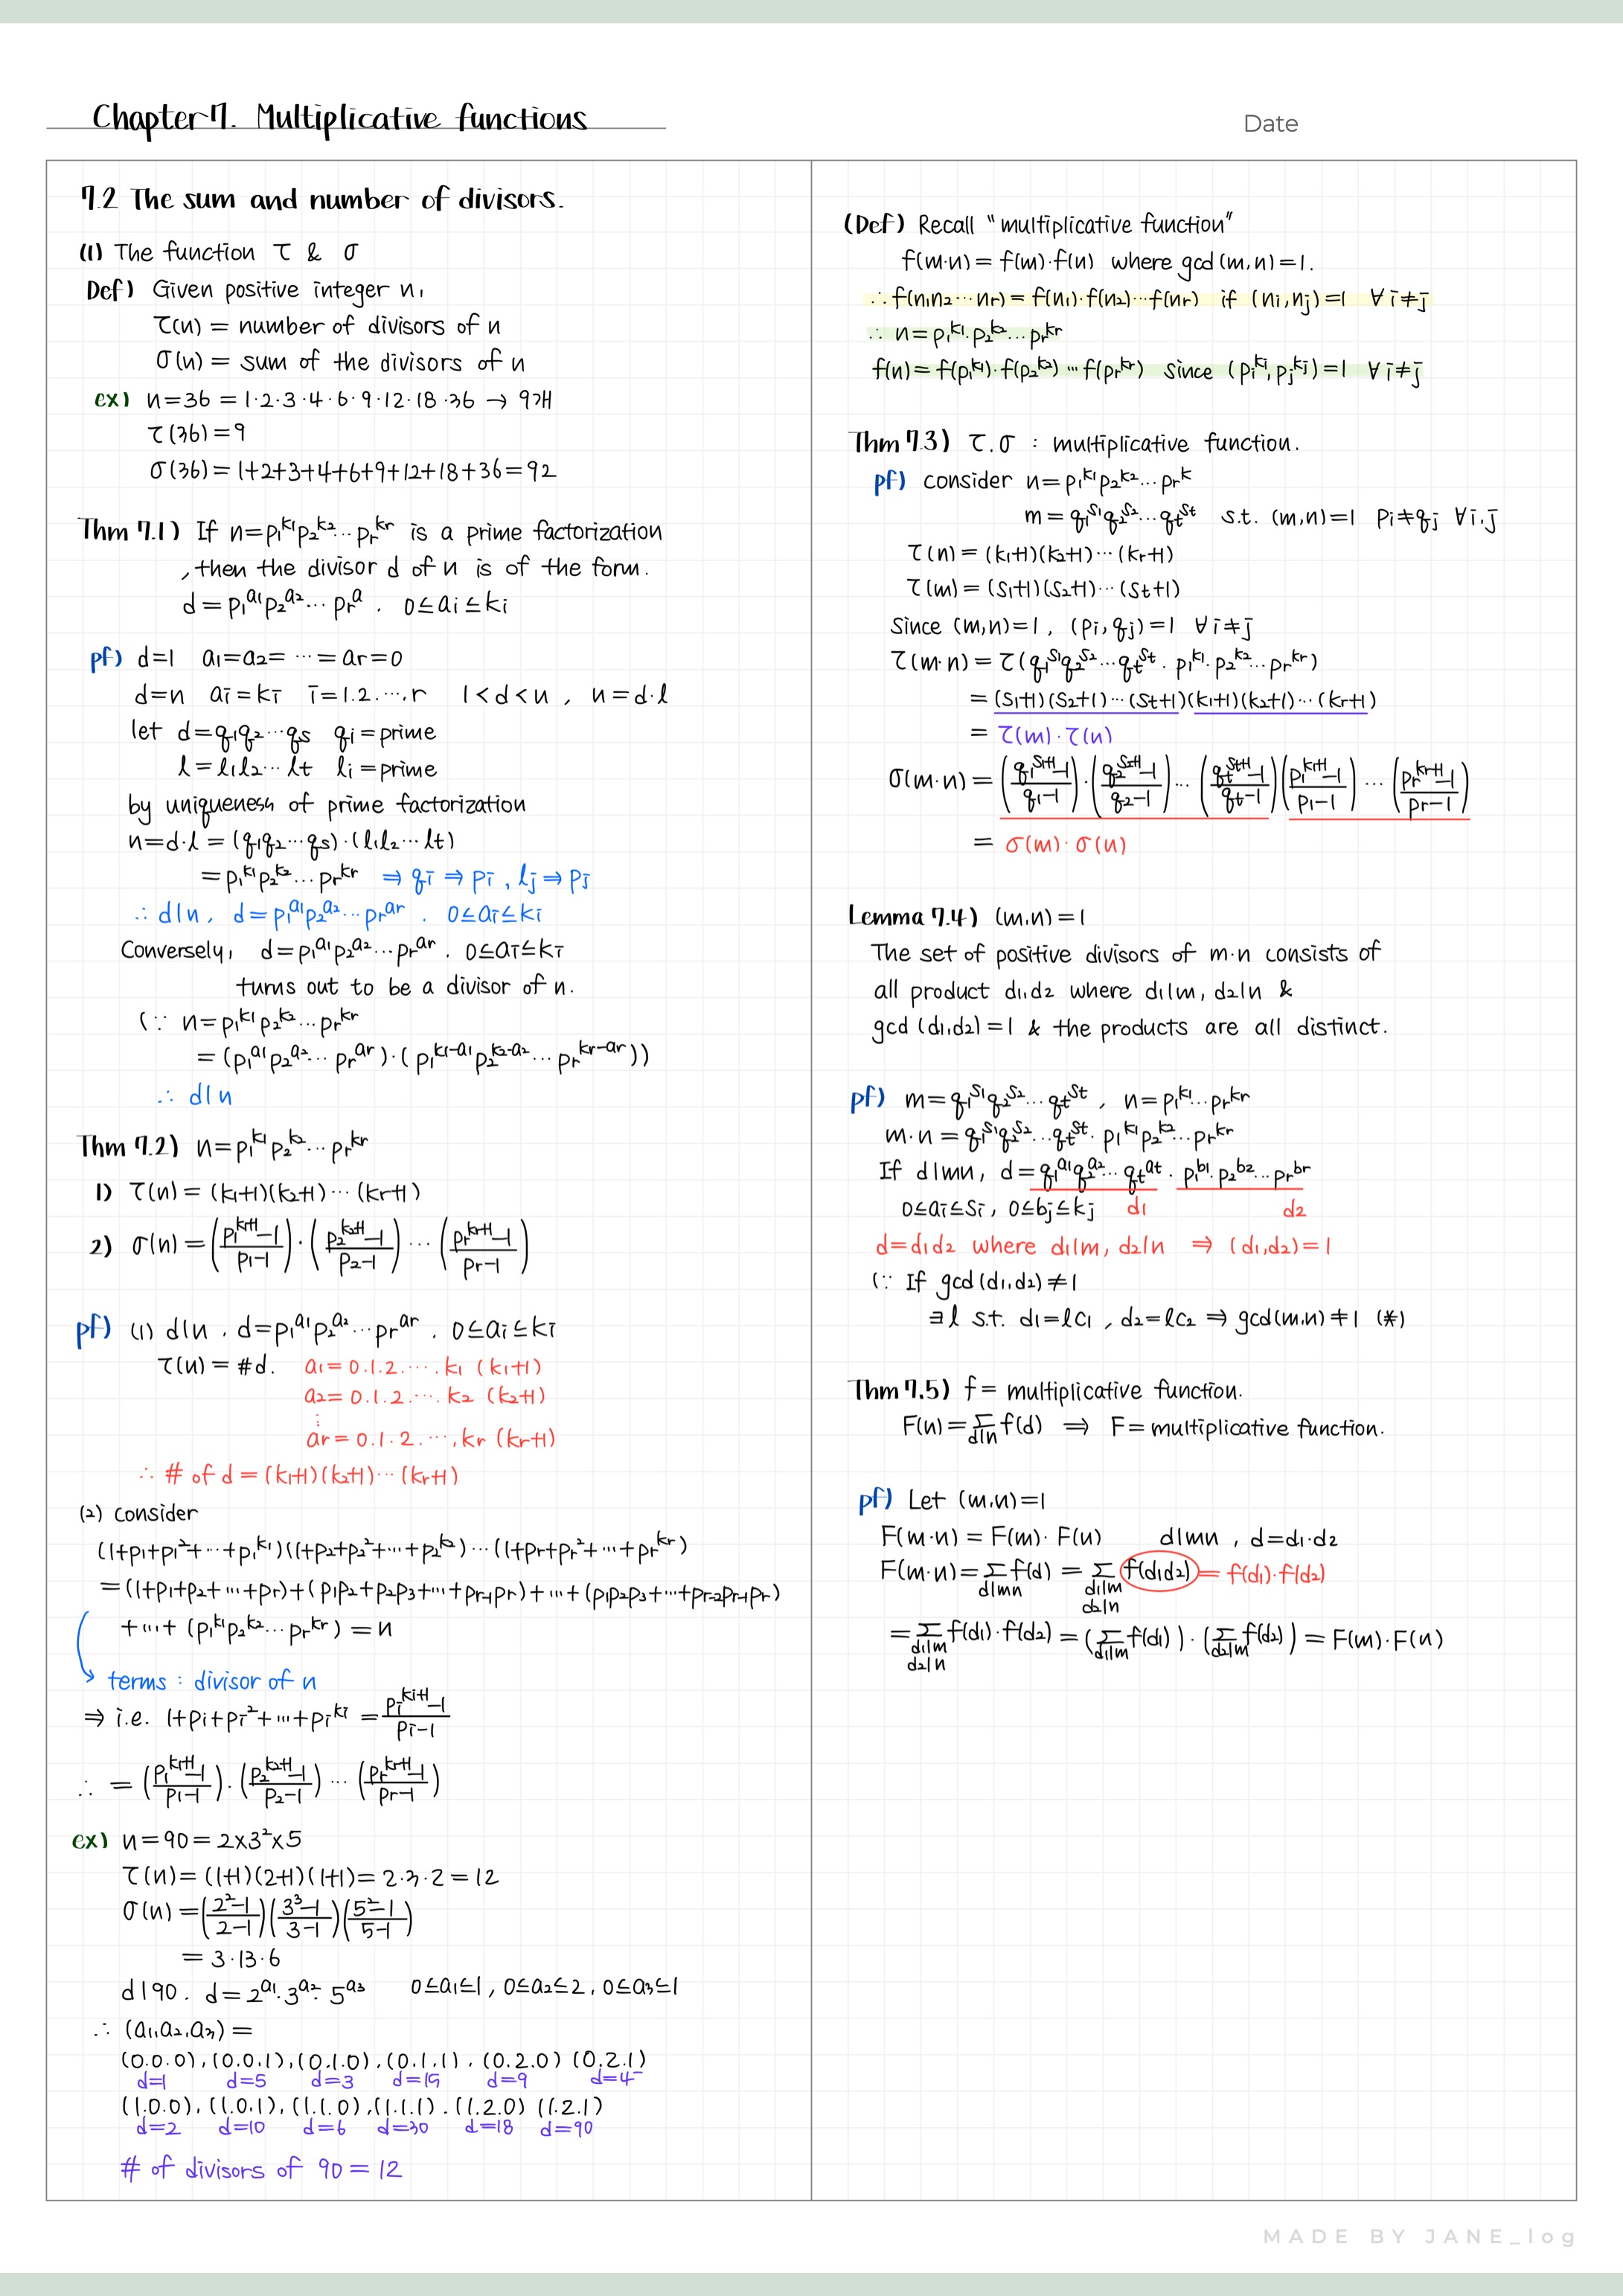 Chapter 7. Multiplicative functions
Date
7.2 The sum and number of divisors.
(1) The function τ & σ
Def) Given positive integer n,
τ(n) = number of divisors of n
σ(n) = sum of the divisors of n
ex) n=36 = 1·2·3·4·6·9·12·18·36 → 9개
τ(36)=9
σ(36)=1+2+3+4+6+9+12+18+36=92
Thm 7.1) If n=p₁^k₁p₂^k₂…pᵣ^kᵣ is a prime factorization
, then the divisor d of n is of the form.
d=p₁^a₁p₂^a₂…pᵣ^a . 0≤aᵢ≤kᵢ
pf) d=1 a₁=a₂=…=aᵣ=0
d=n aᵢ=kᵢ i=1.2.…,r 1<d<n, n=d·l
let d=q₁q₂…qₛ qᵢ=prime
l=l₁l₂…lₜ lᵢ=prime
by uniqueness of prime factorization
n=d·l=(q₁q₂…qₛ)·(l₁l₂…lₜ)
=p₁^k₁p₂^k₂…pᵣ^kᵣ ⇒ qᵢ ⇒ pᵢ, lⱼ ⇒ pⱼ
∴ d|n, d=p₁^a₁p₂^a₂…pᵣ^aᵣ . 0≤aᵢ≤kᵢ
Conversely, d=p₁^a₁p₂^a₂…pᵣ^aᵣ . 0≤aᵢ≤kᵢ
turns out to be a divisor of n.
(∵ n=p₁^k₁p₂^k₂…pᵣ^kᵣ
=(p₁^a₁p₂^a₂…pᵣ^aᵣ)·(p₁^k₁-a₁p₂^k₂-a₂…pᵣ^kᵣ-aᵣ))
∴ d|n
Thm 7.2) n=p₁^k₁p₂^k₂…pᵣ^kᵣ
1) τ(n)=(k₁+1)(k₂+1)…(kᵣ+1)
2) σ(n)=((p₁^k₁+1-1)/(p₁-1))·((p₂^k₂+1-1)/(p₂-1))…((pᵣ^kᵣ+1-1)/(pᵣ-1))
pf) (1) d|n . d=p₁^a₁p₂^a₂…pᵣ^aᵣ . 0≤aᵢ≤kᵢ
τ(n)=#d. a₁=0.1.2.….k₁ (k₁+1)
a₂=0.1.2.….k₂ (k₂+1)
⋮
aᵣ=0.1.2.…,kᵣ (kᵣ+1)
∴ # of d=(k₁+1)(k₂+1)…(kᵣ+1)
(2) consider
(1+p₁+p₁²+…+p₁^k₁)(1+p₂+p₂²+…+p₂^k₂)…(1+pᵣ+pᵣ²+…+pᵣ^kᵣ)
=(1+p₁+p₂+…+pᵣ)+(p₁p₂+p₂p₃+…+pᵣ₋₁pᵣ)+…+(p₁p₂p₃+…+pᵣ₋₂pᵣ₋₁pᵣ)
+…+(p₁^k₁p₂^k₂…pᵣ^kᵣ)=n
terms : divisor of n
⇒ i.e. 1+pᵢ+pᵢ²+…+pᵢ^kᵢ=(pᵢ^kᵢ+1-1)/(pᵢ-1)
∴ =((p₁^k₁+1-1)/(p₁-1))·((p₂^k₂+1-1)/(p₂-1))…((pᵣ^kᵣ+1-1)/(pᵣ-1))
ex) n=90=2×3²×5
τ(n)=(1+1)(2+1)(1+1)=2·3·2=12
σ(n)=((2²-1)/(2-1))((3³-1)/(3-1))((5²-1)/(5-1))
=3·13·6
d|90. d=2^a₁·3^a₂·5^a₃ 0≤a₁≤1, 0≤a₂≤2, 0≤a₃≤1
∴ (a₁,a₂,a₃)=
(0.0.0),(0.0.1),(0.1.0),(0.1.1).(0.2.0) (0.2.1)
d=1 d=5 d=3 d=15 d=9 d=45
(1.0.0),(1.0.1),(1.1.0),(1.1.1).(1.2.0) (1.2.1)
d=2 d=10 d=6 d=30 d=18 d=90
# of divisors of 90=12
(Def) Recall "multiplicative function"
f(m·n)=f(m)·f(n) where gcd(m,n)=1.
∴ f(n₁n₂…nᵣ)=f(n₁)·f(n₂)…f(nᵣ) if (nᵢ,nⱼ)=1 ∀i≠j
∴ n=p₁^k₁·p₂^k₂…pᵣ^kᵣ
f(n)=f(p₁^k₁)·f(p₂^k₂)…f(pᵣ^kᵣ) since (pᵢ^kᵢ,pⱼ^kⱼ)=1 ∀i≠j
Thm 7.3) τ.σ : multiplicative function.
pf) consider n=p₁^k₁p₂^k₂…pᵣ^k
m=q₁^s₁q₂^s₂…qₜ^sₜ s.t. (m,n)=1 pᵢ≠qⱼ ∀i.j
τ(n)=(k₁+1)(k₂+1)…(kᵣ+1)
τ(m)=(s₁+1)(s₂+1)…(sₜ+1)
Since (m,n)=1, (pᵢ,qⱼ)=1 ∀i≠j
τ(m·n)=τ(q₁^s₁q₂^s₂…qₜ^sₜ·p₁^k₁·p₂^k₂…pᵣ^kᵣ)
=(s₁+1)(s₂+1)…(sₜ+1)(k₁+1)(k₂+1)…(kᵣ+1)
=τ(m)·τ(n)
σ(m·n)=((q₁^s₁+1-1)/(q₁-1))·((q₂^s₂+1-1)/(q₂-1))…((qₜ^sₜ+1-1)/(qₜ-1))((p₁^k₁+1-1)/(p₁-1))…((pᵣ^kᵣ+1-1)/(pᵣ-1))
=σ(m)·σ(n)
Lemma 7.4) (m,n)=1
The set of positive divisors of m·n consists of
all product d₁,d₂ where d₁|m, d₂|n &
gcd(d₁,d₂)=1 & the products are all distinct.
pf) m=q₁^s₁q₂^s₂…qₜ^sₜ, n=p₁^k₁…pᵣ^kᵣ
m·n=q₁^s₁q₂^s₂…qₜ^sₜ·p₁^k₁p₂^k₂…pᵣ^kᵣ
If d|mn, d=q₁^a₁q₂^a₂…qₜ^aₜ·p₁^b₁·p₂^b₂…pᵣ^bᵣ
0≤aᵢ≤sᵢ, 0≤bⱼ≤kⱼ d₁ d₂
d=d₁d₂ where d₁|m, d₂|n ⇒ (d₁,d₂)=1
(∵ If gcd(d₁,d₂)≠1
∃l s.t. d₁=lc₁, d₂=lc₂ ⇒ gcd(m,n)≠1 (*)
Thm 7.5) f= multiplicative function.
F(n)=Σ_{d|n} f(d) ⇒ F=multiplicative function.
pf) Let (m,n)=1
F(m·n)=F(m)·F(n) d|mn, d=d₁·d₂
F(m·n)=Σ_{d|mn} f(d)=Σ_{d₁|m d₂|n} f(d₁d₂)=f(d₁)·f(d₂)
=Σ_{d₁|m d₂|n} f(d₁)·f(d₂)=(Σ_{d₁|m} f(d₁))·(Σ_{d₂|m} f(d₂))=F(m)·F(n)
MADE BY JANE_log